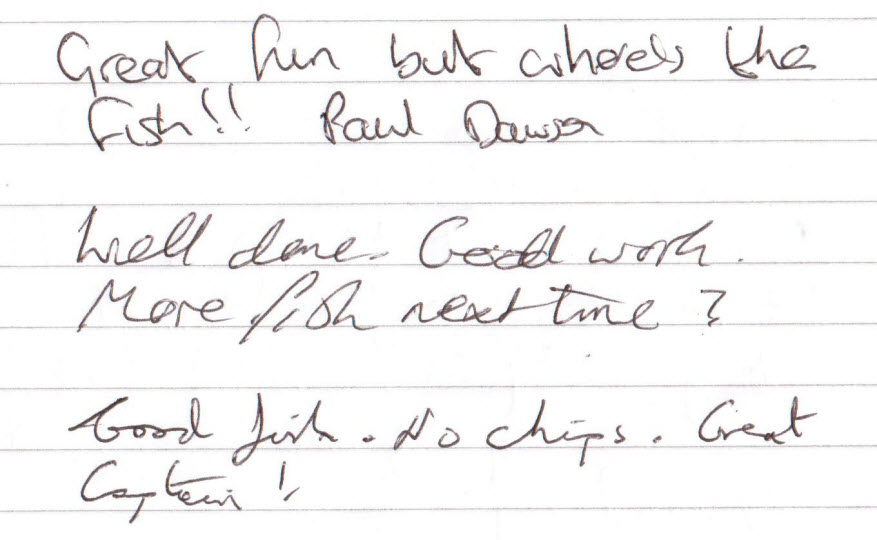 Great fun but wheres the
Fish!! Paul Dawson
Well done. Good work.
More fish next time?
Good fish. No chips. Great
Captain!